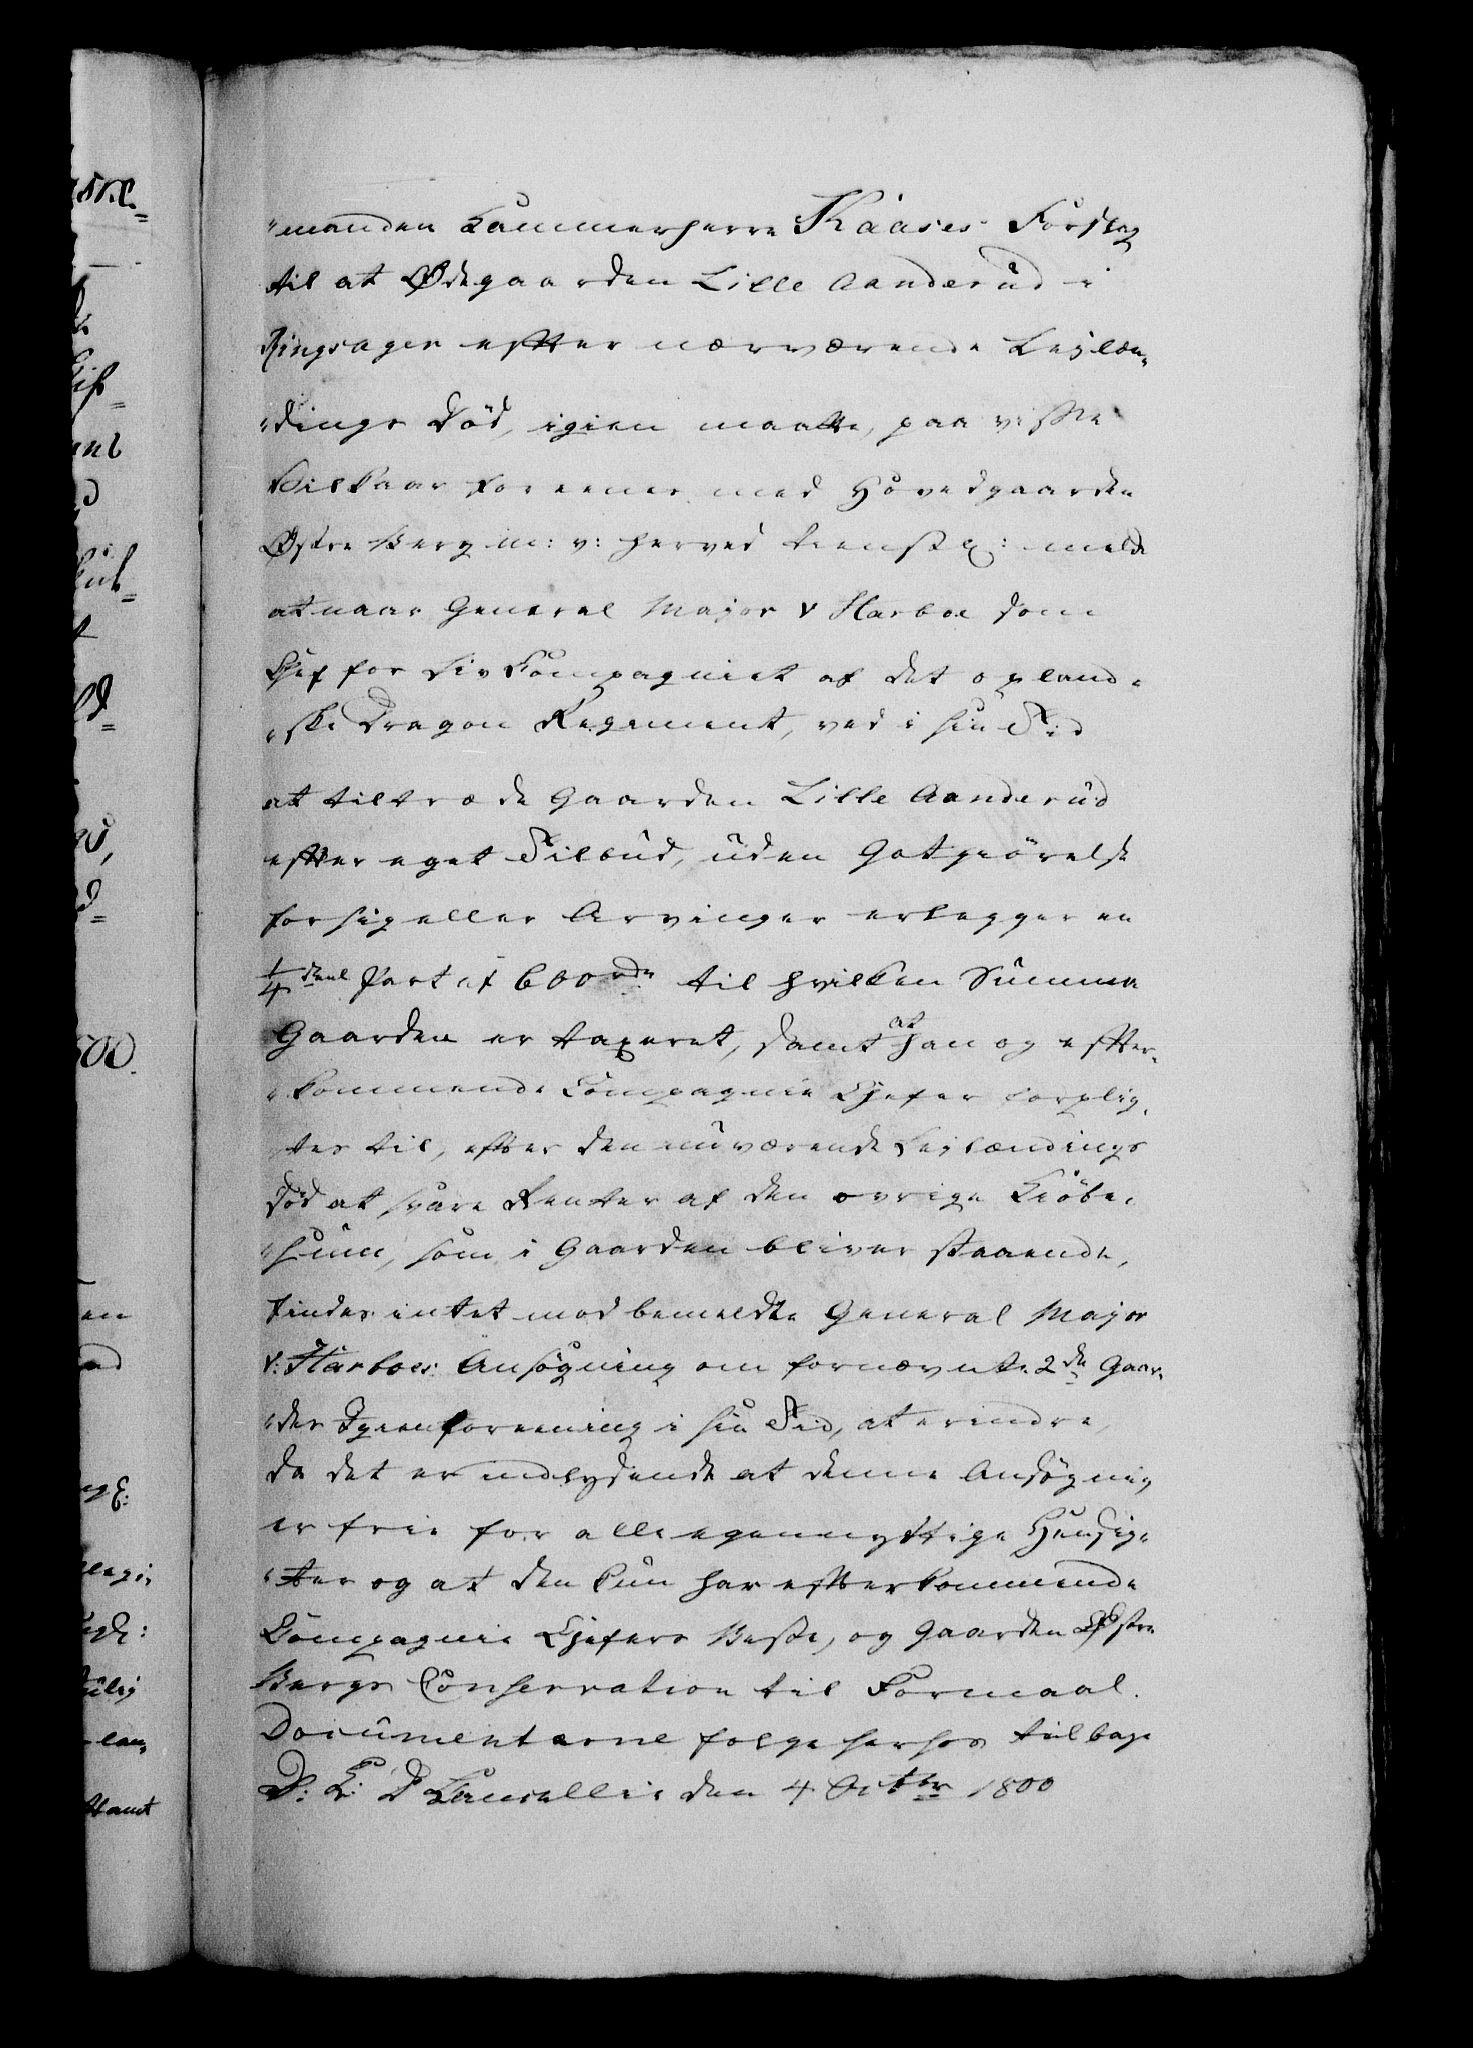 manden Kammerherre Kaases Forslag
til at Ødegaarden Lille Aanderud i
Ringsager efter nærværende Leylæn-
dings Död, igien maatte, paa visse
Vilkaar foreenes med Hovedgaarden
Østre Berg m: v: herved tienstl: melde
at naar General Major v Harboe som
Chef for Liv Compagniet af det opland-
ske Dragon Regiment, ved i sin Tid
at tiltræde Gaarden Lille Aanderud
efter eget Tilbud, uden Gotgiörelse
for sig eller Arvinger erlegger en
1/4 deel Part af 600 rdr til hvilken Summa
Gaarden er taxeret, samt at han og efter-
kommende Compagnie Chefer forplig-
tes til, efter den nuværende Leylændings
Död at svare Renter af den övrige Kiöbe-
sum, som i Gaarden bliver staaende,
findes intet mod bemeldte General Major
v: Harboes Ansögning om fornævnte 2de Gaar-
des Igienforeening i sin Tid, at erindre,
da det er indlysende at denne Ansögning
er frie for alle egennyttige Hensig-
ter og at den kun har efterkommende
Compagnie Chefers Beste, og Gaarden Østre
Bergs Conservation til Formaal.
Documenterne følge herhos tilbage
D: C: Cancellie den 4 Octbr 1800